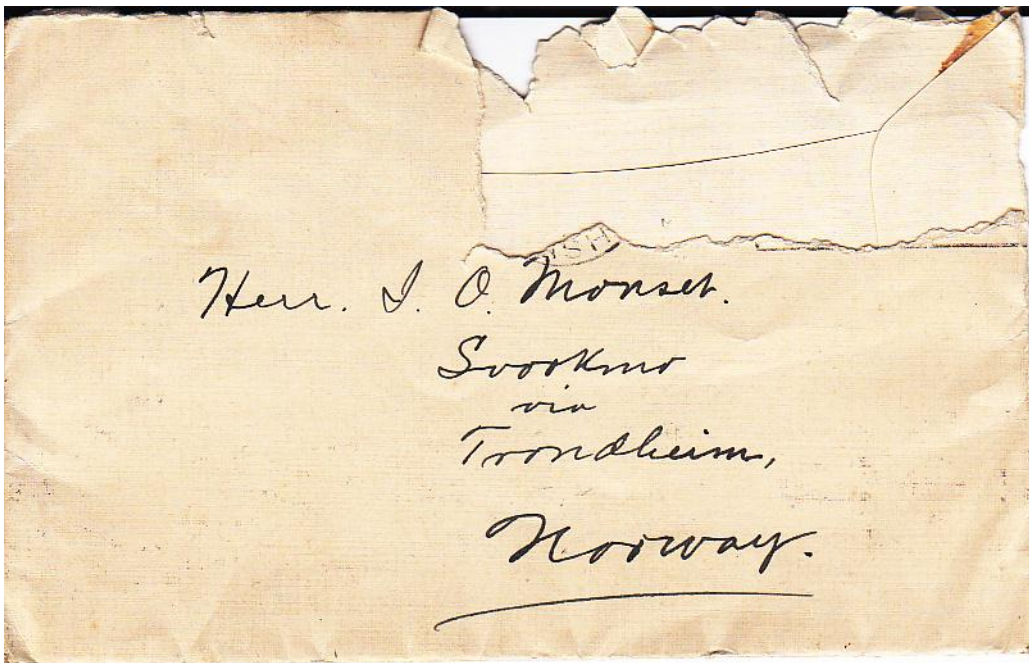 ISH
Herr. I. O. Monset.
Svorkmo
via
Trondheim,
Norway.